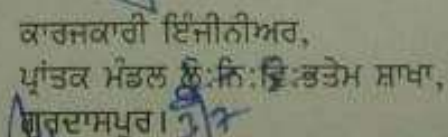 ਕਾਰਜਕਾਰੀ ਇੰਜੀਨੀਅਰ,
ਪ੍ਰਾਂਤਕ ਮੰਡਲ ਲੋ:ਨਿ:ਵਿ:ਭਤੇਮ ਸ਼ਾਖਾ,
ਗੁਰਦਾਸਪੁਰ।